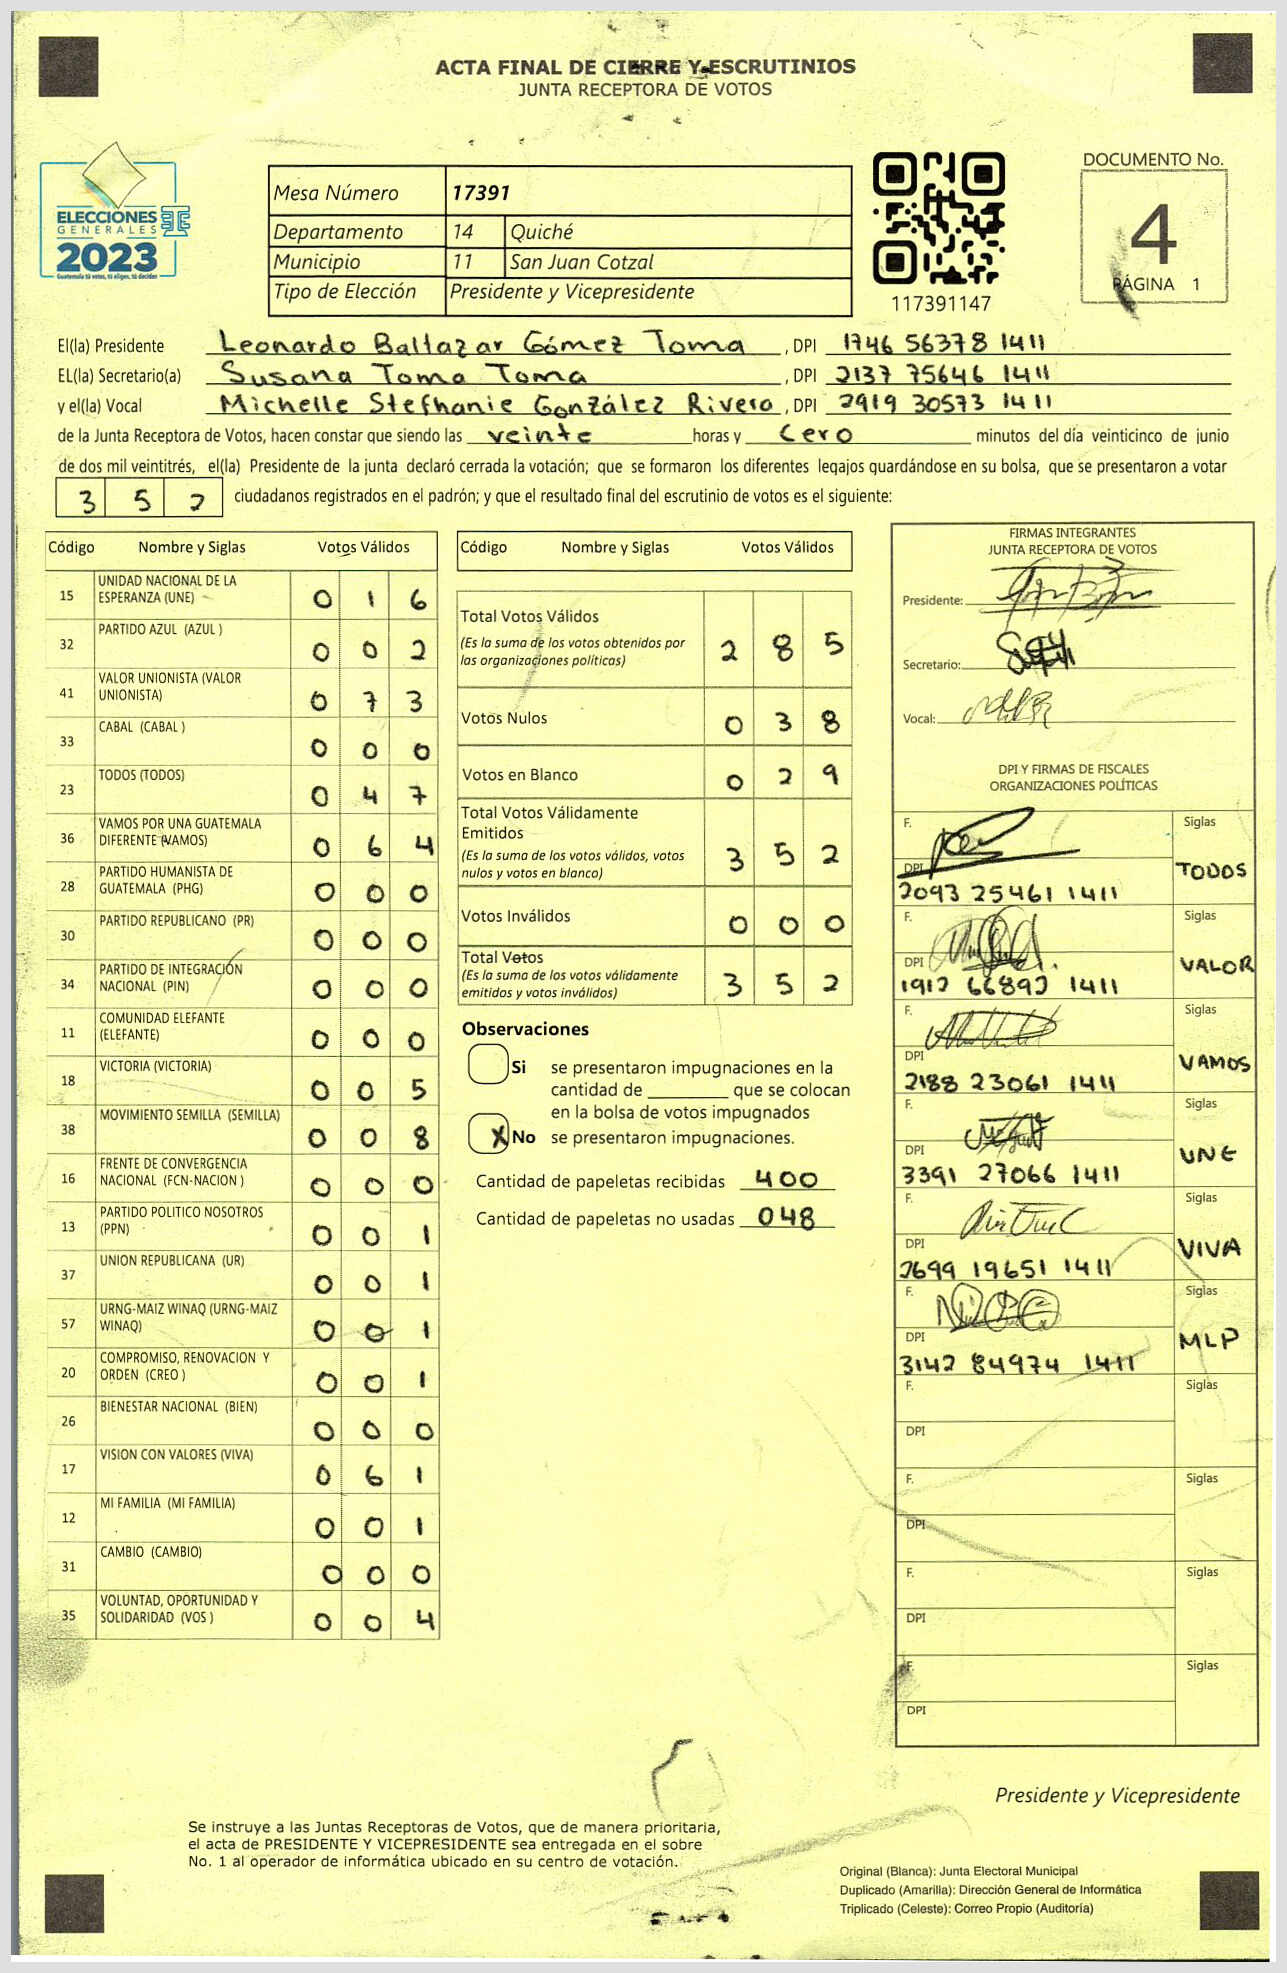 ACTA FINAL DE CIERRE Y ESCRUTINIOS
JUNTA RECEPTORA DE VOTOS
ELECCIONES
GENERALES
2023
Guatemala tú votas, tú eliges, tú decides
Mesa Número 17391
Departamento 14 Quiché
Municipio 11 San Juan Cotzal
Tipo de Elección Presidente y Vicepresidente
117391147
DOCUMENTO No.
4
PÁGINA 1
El(la) Presidente Leonardo Baltazar Gómez Toma , DPI 1746 56378 1411
EL(la) Secretario(a) Susana Toma Toma , DPI 2137 75646 1411
y el(la) Vocal Michelle Stefhanie González Rivera , DPI 2919 30573 1411
de la Junta Receptora de Votos, hacen constar que siendo las veinte horas y cero minutos del día veinticinco de junio
de dos mil veintitrés, el(la) Presidente de la junta declaró cerrada la votación; que se formaron los diferentes legajos guardándose en su bolsa, que se presentaron a votar
3 5 2 ciudadanos registrados en el padrón; y que el resultado final del escrutinio de votos es el siguiente:
Código Nombre y Siglas Votos Válidos
15 UNIDAD NACIONAL DE LA ESPERANZA (UNE) 0 1 6
32 PARTIDO AZUL (AZUL ) 0 0 2
41 VALOR UNIONISTA (VALOR UNIONISTA) 0 7 3
33 CABAL (CABAL ) 0 0 0
23 TODOS (TODOS) 0 4 7
36 VAMOS POR UNA GUATEMALA DIFERENTE (VAMOS) 0 6 4
28 PARTIDO HUMANISTA DE GUATEMALA (PHG) 0 0 0
30 PARTIDO REPUBLICANO (PR) 0 0 0
34 PARTIDO DE INTEGRACIÓN NACIONAL (PIN) 0 0 0
11 COMUNIDAD ELEFANTE (ELEFANTE) 0 0 0
18 VICTORIA (VICTORIA) 0 0 5
38 MOVIMIENTO SEMILLA (SEMILLA) 0 0 8
16 FRENTE DE CONVERGENCIA NACIONAL (FCN-NACION ) 0 0 0
13 PARTIDO POLITICO NOSOTROS (PPN) 0 0 1
37 UNION REPUBLICANA (UR) 0 0 1
57 URNG-MAIZ WINAQ (URNG-MAIZ WINAQ) 0 0 1
20 COMPROMISO, RENOVACION Y ORDEN (CREO ) 0 0 1
26 BIENESTAR NACIONAL (BIEN) 0 0 0
17 VISION CON VALORES (VIVA) 0 6 1
12 MI FAMILIA (MI FAMILIA) 0 0 1
31 CAMBIO (CAMBIO) 0 0 0
35 VOLUNTAD, OPORTUNIDAD Y SOLIDARIDAD (VOS ) 0 0 4
Código Nombre y Siglas Votos Válidos
Total Votos Válidos 2 8 5
(Es la suma de los votos obtenidos por
las organizaciones políticas)
Votos Nulos 0 3 8
Votos en Blanco 0 2 9
Total Votos Válidamente
Emitidos 3 5 2
(Es la suma de los votos válidos, votos
nulos y votos en blanco)
Votos Inválidos 0 0 0
Total Votos 3 5 2
(Es la suma de los votos válidamente
emitidos y votos inválidos)
Observaciones
Si se presentaron impugnaciones en la
cantidad de ________ que se colocan
en la bolsa de votos impugnados
X No se presentaron impugnaciones.
Cantidad de papeletas recibidas 400
Cantidad de papeletas no usadas 048
FIRMAS INTEGRANTES
JUNTA RECEPTORA DE VOTOS
Presidente:
Secretario:
Vocal:
DPI Y FIRMAS DE FISCALES
ORGANIZACIONES POLÍTICAS
F. Siglas
DPI TODOS
2093 25461 1411
F. Siglas
DPI VALOR
1912 66892 1411
F. Siglas
DPI VAMOS
2188 23061 1411
F. Siglas
DPI UNE
3391 27066 1411
F. Siglas
DPI VIVA
2699 19651 1411
F. Siglas
DPI MLP
3142 84974 1411
F. Siglas
DPI
F. Siglas
DPI
F. Siglas
DPI
F. Siglas
DPI
Presidente y Vicepresidente
Se instruye a las Juntas Receptoras de Votos, que de manera prioritaria,
el acta de PRESIDENTE Y VICEPRESIDENTE sea entregada en el sobre
No. 1 al operador de informática ubicado en su centro de votación.
Original (Blanca): Junta Electoral Municipal
Duplicado (Amarilla): Dirección General de Informática
Triplicado (Celeste): Correo Propio (Auditoría)